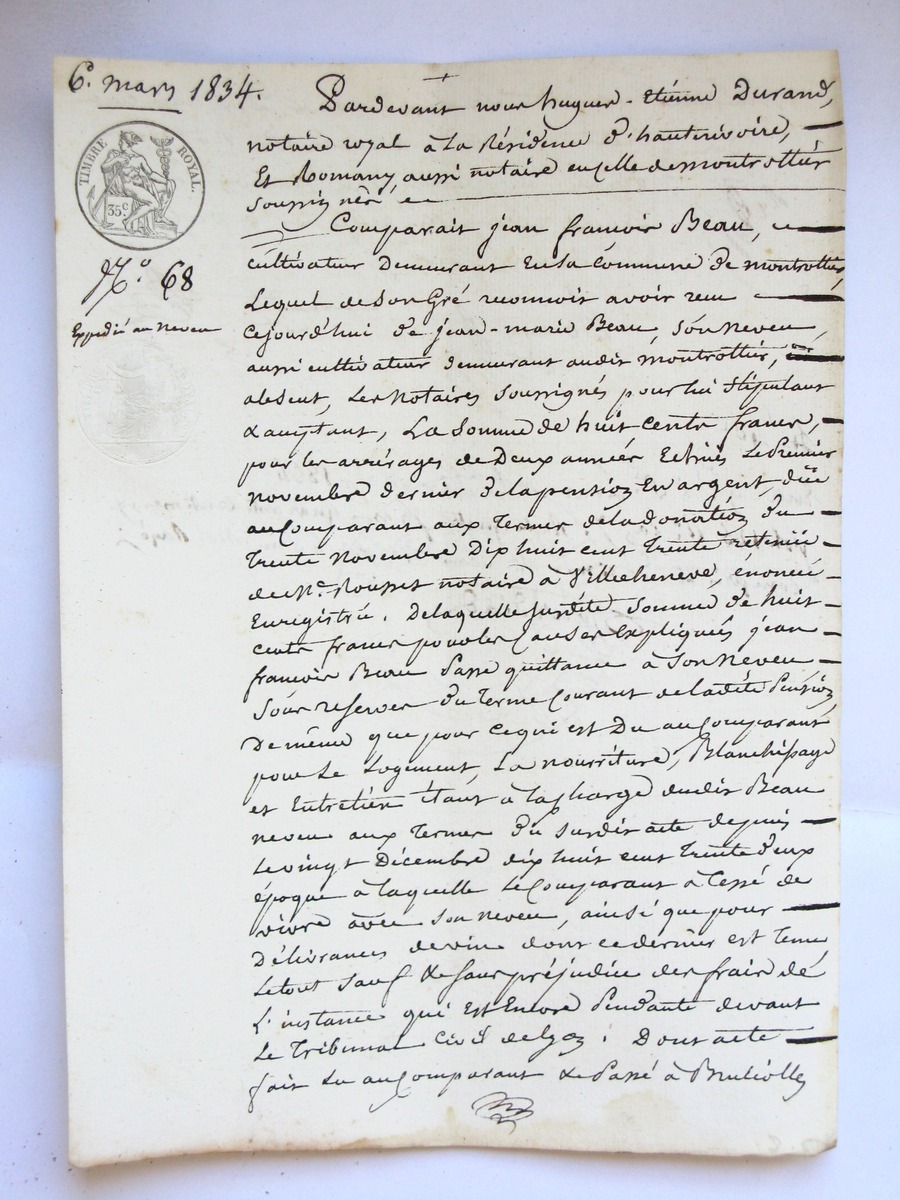 6. mars 1834.
TIMBRE ROYAL.
35 c
N.º 68
Expédié au neveu
Pardevant nous hugues-Etienne Durand,
notaire royal à la Résidence d'hauterivoire,
Et Romany aussi notaire en celle de montrottier
soussignés,
Comparait jean françois Beau,
cultivateur Demeurant En la Commune de montrottier,
Lequel de Son Gré reconnoit avoir reçu
cejourd'hui de jean-marie Beau, Son Neveu,
aussi cultivateur demeurant audit montrottier,
absent, Les Notaires Soussignés pour lui Stipulant
& acceptant, La Somme de huit cents francs,
pour les arrérages de Deux années Echues Le Premier
novembre dernier de la pension En argent, düe
au Comparant aux Termes de la donation du
Trente Novembre Dix huit cent Trente retenüe
de Me. Rousset notaire à Villecheneve, énoncée
Enregistrée. De laquelle susdite Somme de huit
cents francs pour les Causes Expliquées jean
françois Beau Passe quittance à Son Neveu
Sous reserves du Terme Courant de ladite Pension,
De même que pour ce qui est Du au Comparant
pour Le Logement, La nourriture, Blanchissage
et Entretien étant à la Charge dudit Beau
neveu aux Termes du Susdit acte depuis
Le vingt Décembre dix huit cent Trente deux
époque à laquelle Le Comparant à Cessé de
vivre avec Son neveu, ainsi que pour
Délivrances de vin dont ce dernier est Tenu
Le tout Sauf & Sans préjudice des frais de
L'instance qui Est Encore Pendante devant
Le Tribunal Civil de Lyon. Dont acte
fait Lu au Comparant & Passé à Brullioles